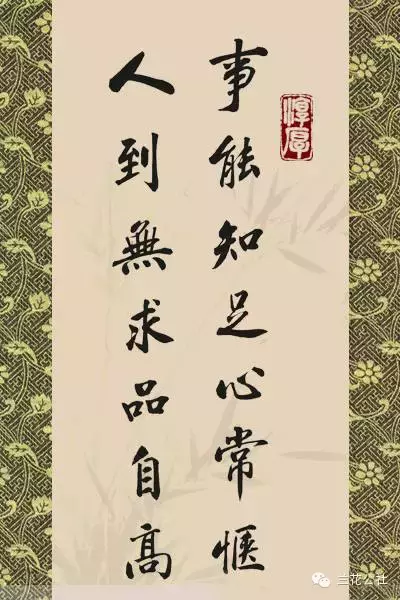 淳厚
事能知足心常惬
人到無求品自高
兰花公社